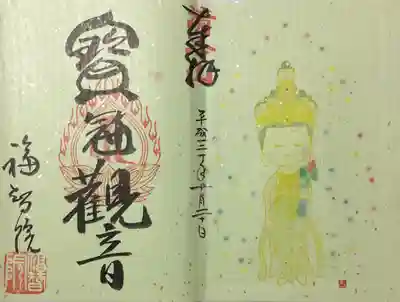 奉拝
平成 十月二十日
寶冠觀音
福智院